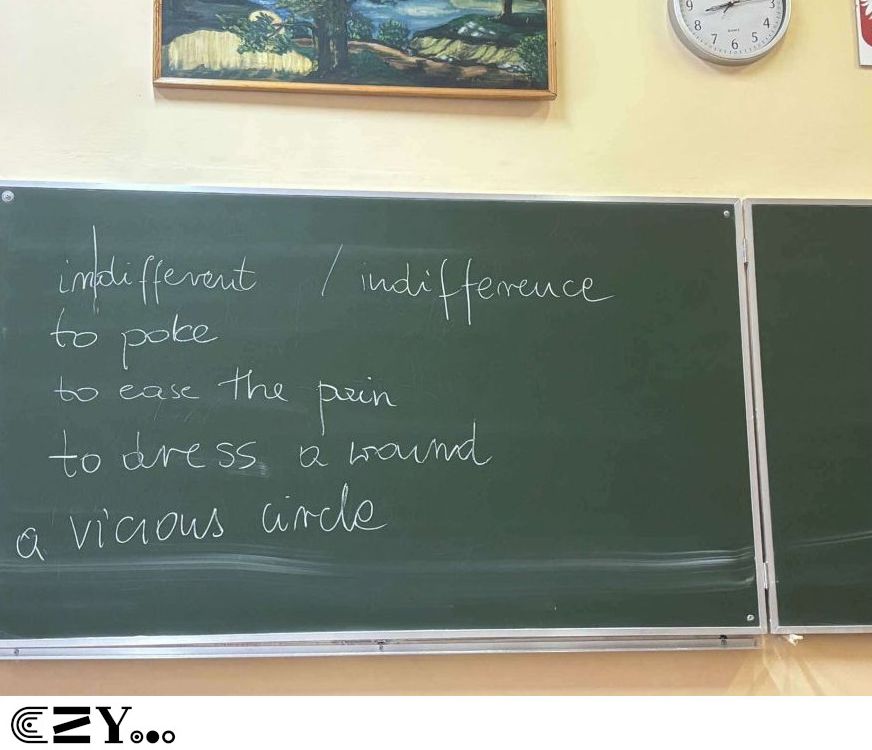 9 3
8 4
7 6 5
indifferent / indifference
to poke
to ease the pain
to dress a wound
a vicious circle
CZY...